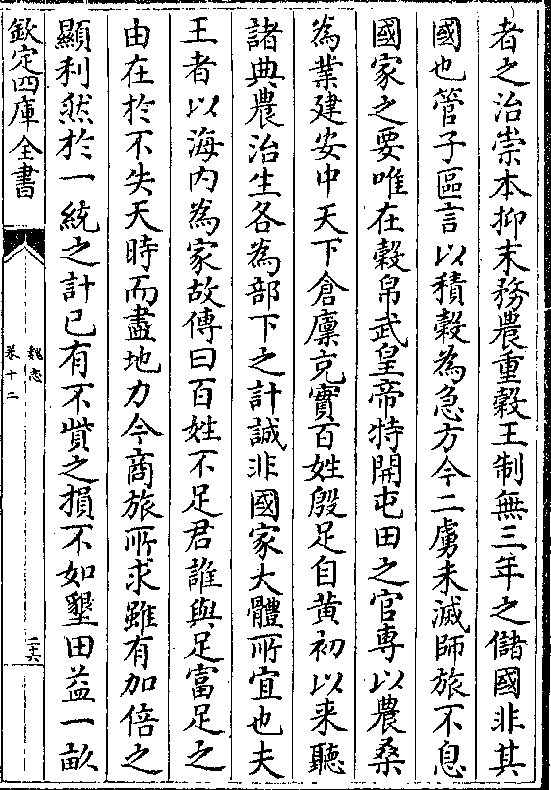 者之治崇本抑末務農重穀王制無三年之儲國非其
國也管子區言以積穀為急方今二虜未滅師旅不息
國家之要唯在穀帛武皇帝特開屯田之官專以農桑
為業建安中天下倉廩充實百姓殷足自黃初以来聽
諸典農治生各為部下之計誠非國家大體所宜也夫
王者以海内為家故傳曰百姓不足君誰與足富足之
由在於不失天時而盡地力今商旅所求雖有加倍之
顯利然於一統之計已有不貲之損不如墾田益一畝
欽定四庫全書
魏志
卷十二
二十六